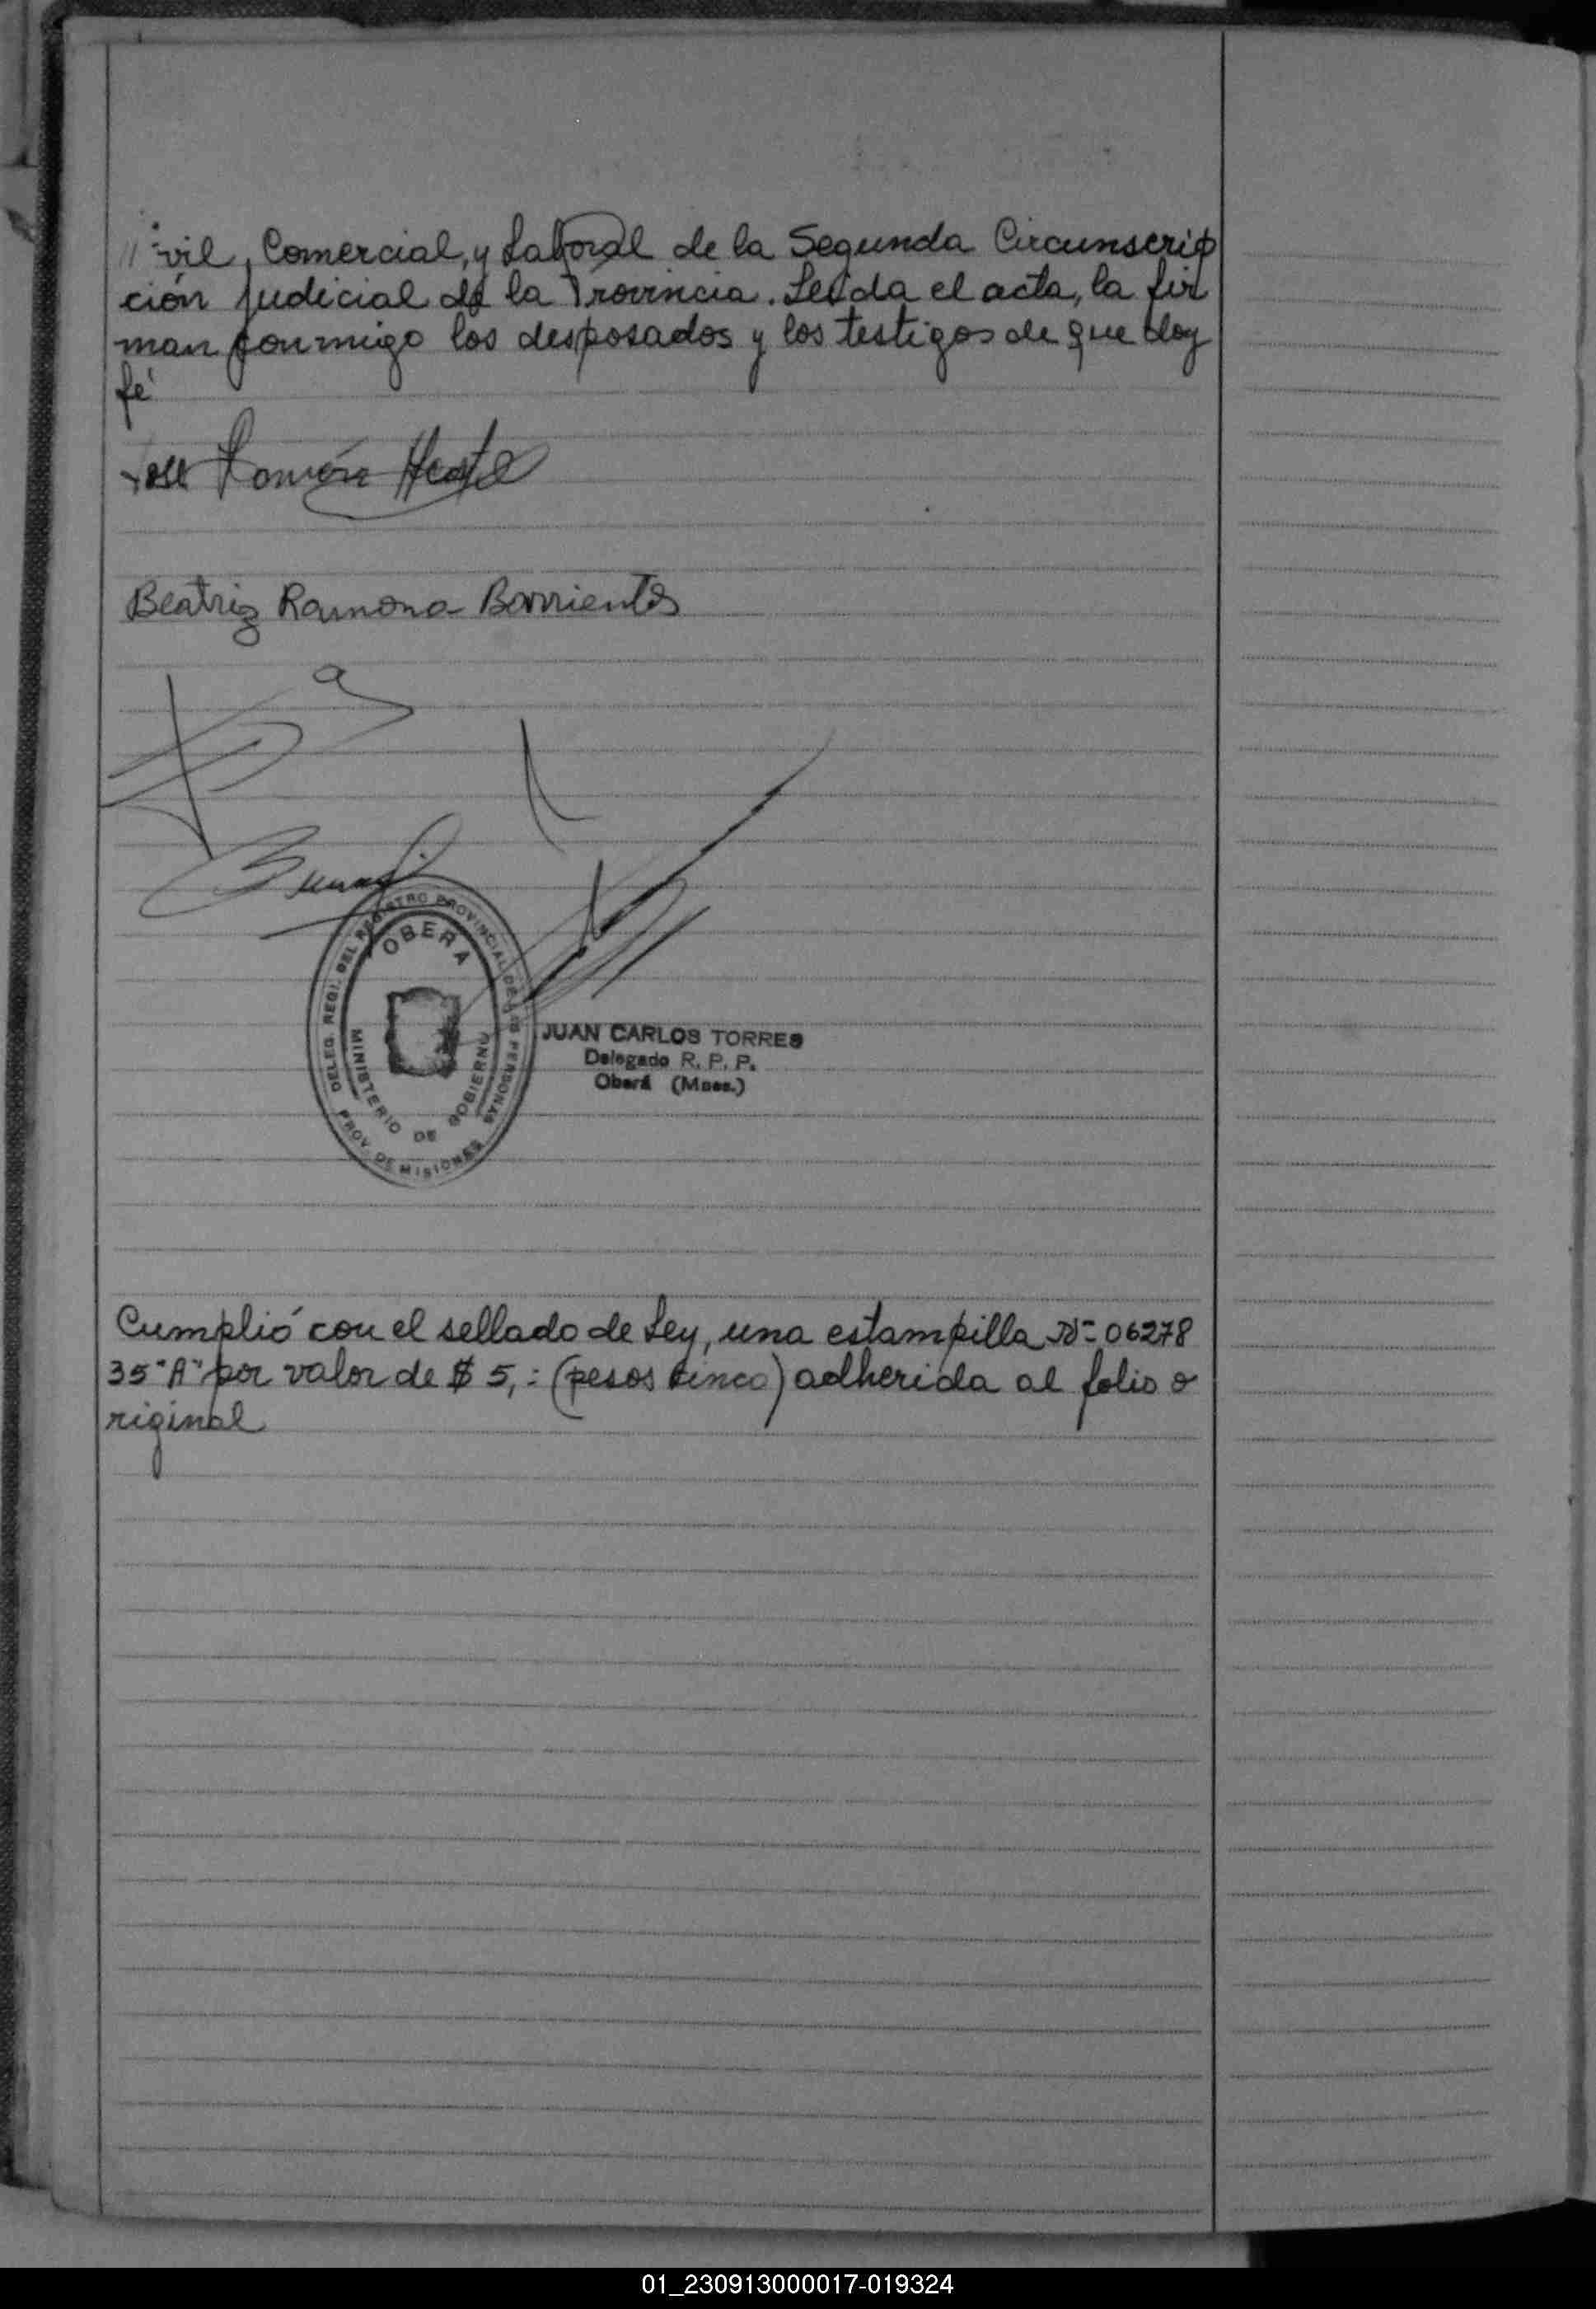 //vil, Comercial, y Laboral de la Segunda Circunscrip
ción Judicial de la Provincia. Leída el acta, la fir
man conmigo los desposados y los testigos de que doy
fé
José Ramón
Beatriz Ramona Barrientos
DELEG. REGI. DEL REGISTRO PROVINCIAL DE LAS PERSONAS
OBERA
MINISTERIO DE GOBIERNO
PROV. DE MISIONES
JUAN CARLOS TORRES
Delegado R. P. P.
Oberá (Mnes.)
Cumplió con el sellado de Ley, una estampilla Nº 06278
35 "A" por valor de $ 5,= (pesos cinco) adherida al folio o
riginal
01_230913000017-019324